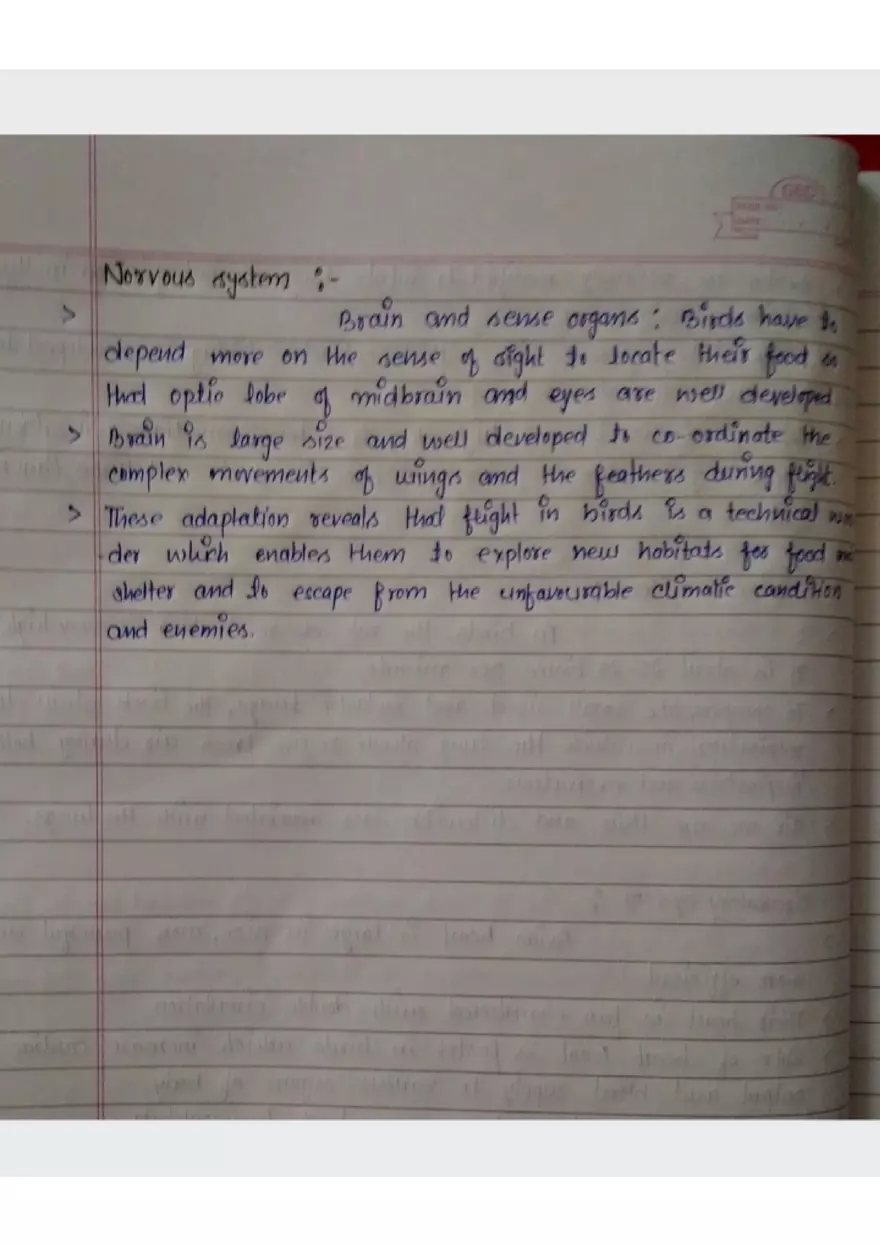 Norvous system :-
> Brain and sense organs : Birds have to
depend more on the sense of sight to locate their food so
that optic lobe of midbrain and eyes are well developed
> Brain is large size and well developed to co-ordinate the
complex movements of wings and the feathers during flight.
> These adaptation reveals that flight in birds is a technical won
der which enables them to explore new habitats for food
shelter and to escape from the unfavourable climatic condition
and enemies.